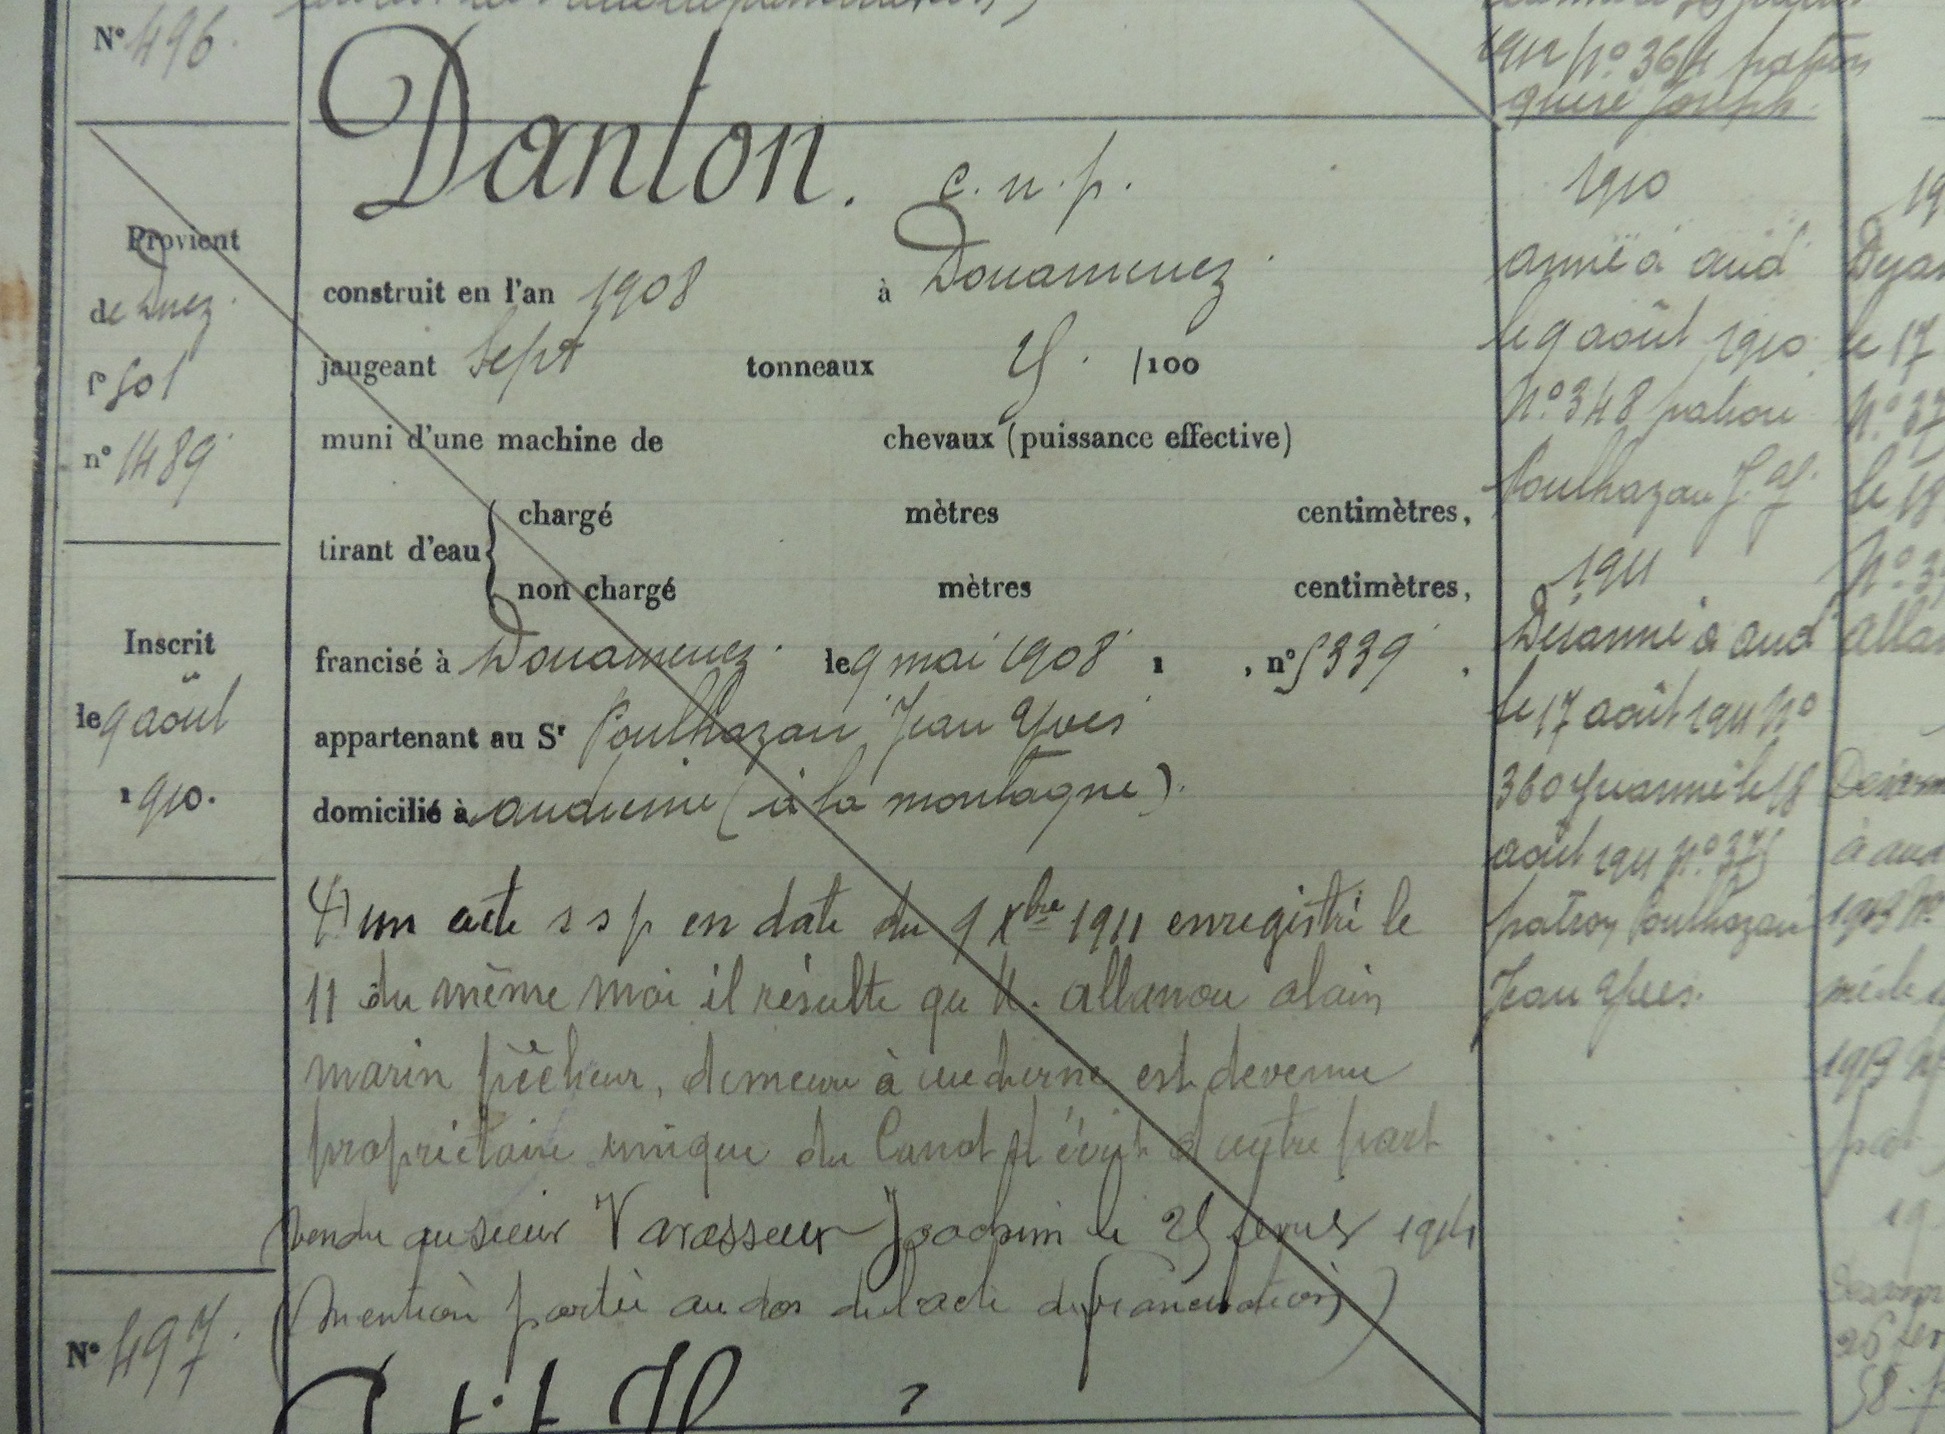 N° 496.
Danton. c. n. p.
Provient
de Dnez.
f° 501
n° 1489
construit en l'an 1908 à Douarnenez
jaugeant Sept tonneaux /100
muni d'une machine de chevaux (puissance effective)
tirant d'eau { chargé mètres centimètres,
non chargé mètres centimètres,
francisé à Douarnenez. le 9 mai 1908 1 , n° 5339 ,
appartenant au Sr Poulhazan Jean Yves
domicilié à audierne (à la montagne).
Inscrit
le 9 août
1910.
D'un acte s s p en date du 9 Xbre 1911 enregistré le
11 du même moi il résulte qu M. allanou alain
marin pêcheur, demeure à audierne est devenue
propriétaire unique du Canot d'autre part
vendu au sieur Varasseur Joachim le 25 février 1914
(mention portée au dos de l'acte de francisation)
N° 497.
1912 N° 364 patron
quéré Joseph.
1910
armé à aud
le 9 août 1910
N° 348 patron
Poulhazan J. Y.
1911
Désarmé à aud
le 17 août 1911 N°
360 Réarmé le 18
août 1911 N° 375
patron Poulhazan
Jean Yves.
le 17
N° 37
le 18
N° 3
allan
à aud
1913 N°
1913 N°
19
58